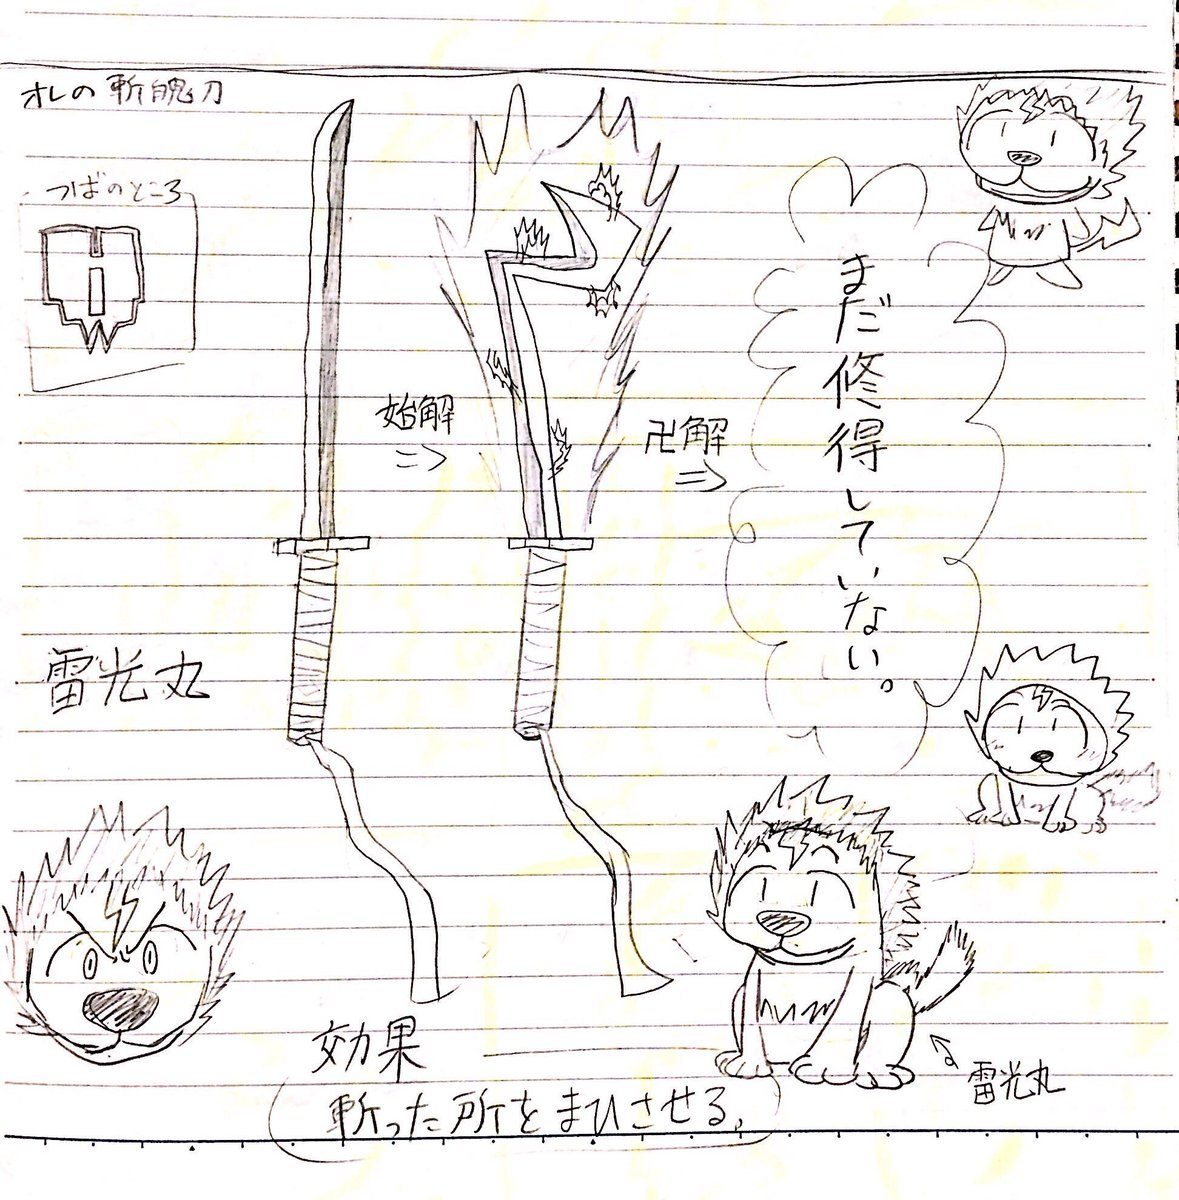 オレの斬魄刀
つばのところ
始解
卍解
まだ修得していない。
雷光丸
効果
斬った所をまひさせる。
雷光丸